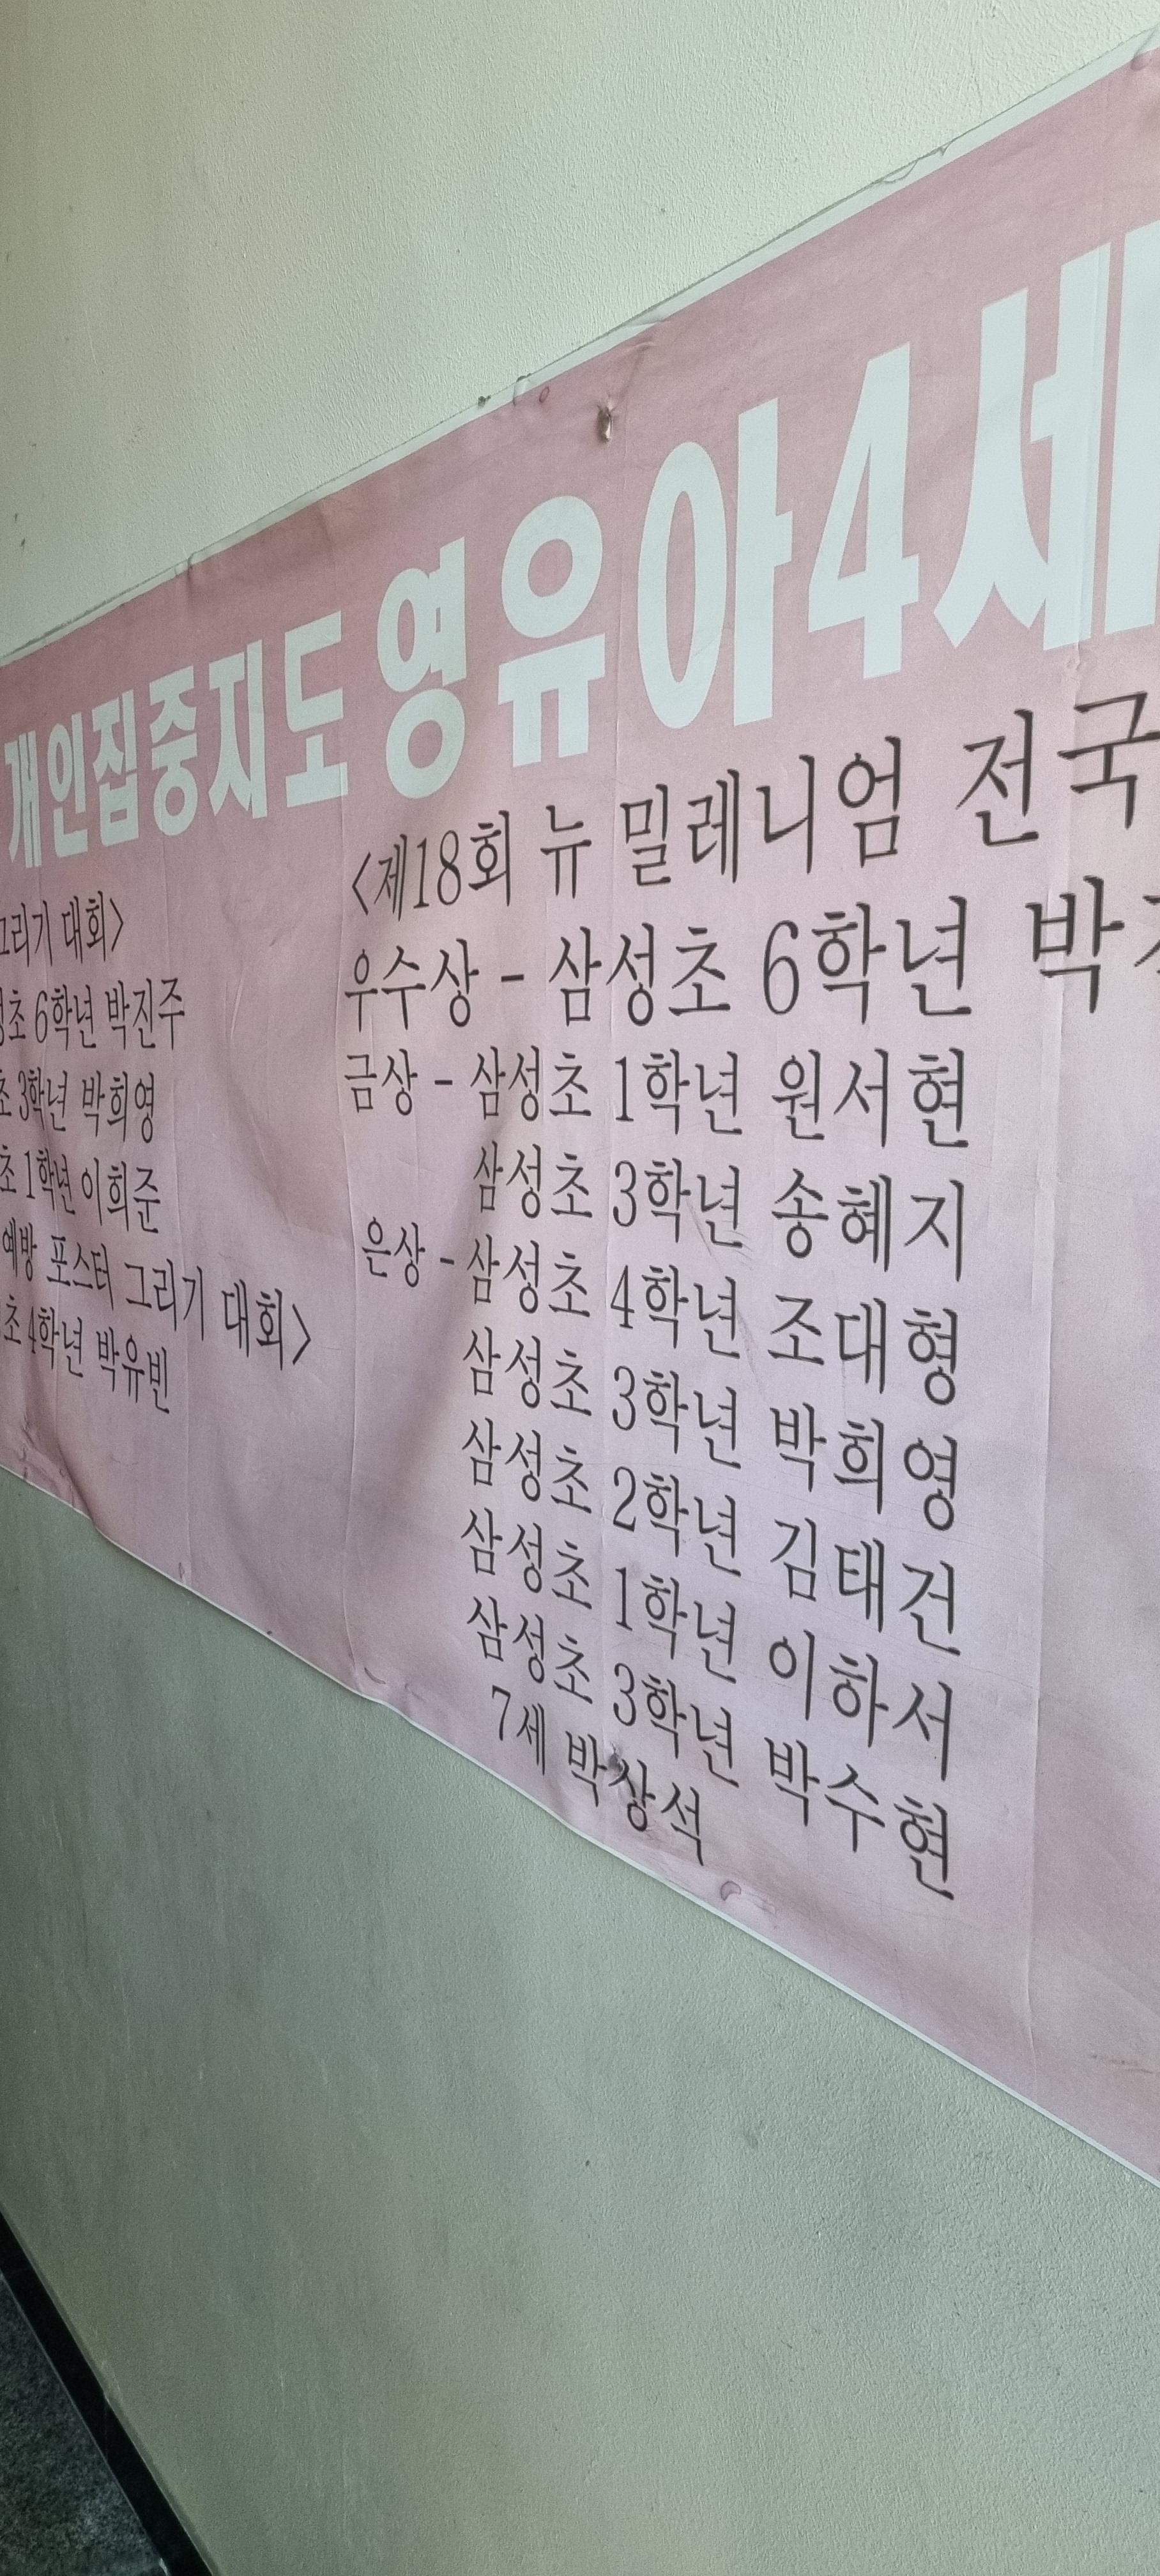 개인집중지도 영유아4세
그리기 대회>
초 6학년 박진주
초 3학년 박희영
초 1학년 이희준
예방 포스터 그리기 대회>
초 4학년 박유빈
<제18회 뉴 밀레니엄 전국
우수상 - 삼성초 6학년 박
금상 - 삼성초 1학년 원서현
삼성초 3학년 송혜지
은상 - 삼성초 4학년 조대형
삼성초 3학년 박희영
삼성초 2학년 김태건
삼성초 1학년 이하서
삼성초 3학년 박수현
7세 박상석